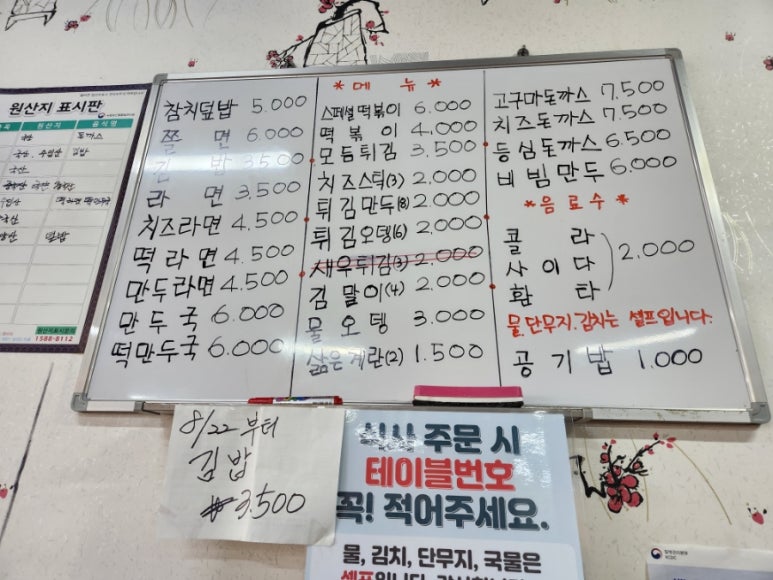 원산지 표시판
원산지
음식명
돈까스
김밥
덮밥
원산지표시문의
1588-8112
*메 뉴*
참치덮밥 5.000
쫄 면 6.000
김 밥 3.500
라 면 3.500
치즈라면 4.500
떡라면 4.500
만두라면 4.500
만두국 6.000
떡만두국 6.000
스페셜떡볶이 6.000
떡볶이 4,000
모듬튀김 3.500
치즈스틱(3) 2.000
튀김만두(8) 2.000
튀김오뎅(6) 2.000
새우튀김(3) 2.000
김말이(4) 2.000
물오뎅 3.000
삶은계란(2) 1.500
고구마돈까스 7.500
치즈돈까스 7.500
등심돈까스 6.500
비빔만두 6.000
*음료수*
콜 라
사이다 2.000
환 타
물,단무지,김치는 셀프입니다.
공기밥 1.000
8/22 부터
김밥
₩3.500
식사 주문 시
테이블번호
꼭! 적어주세요.
물, 김치, 단무지, 국물은